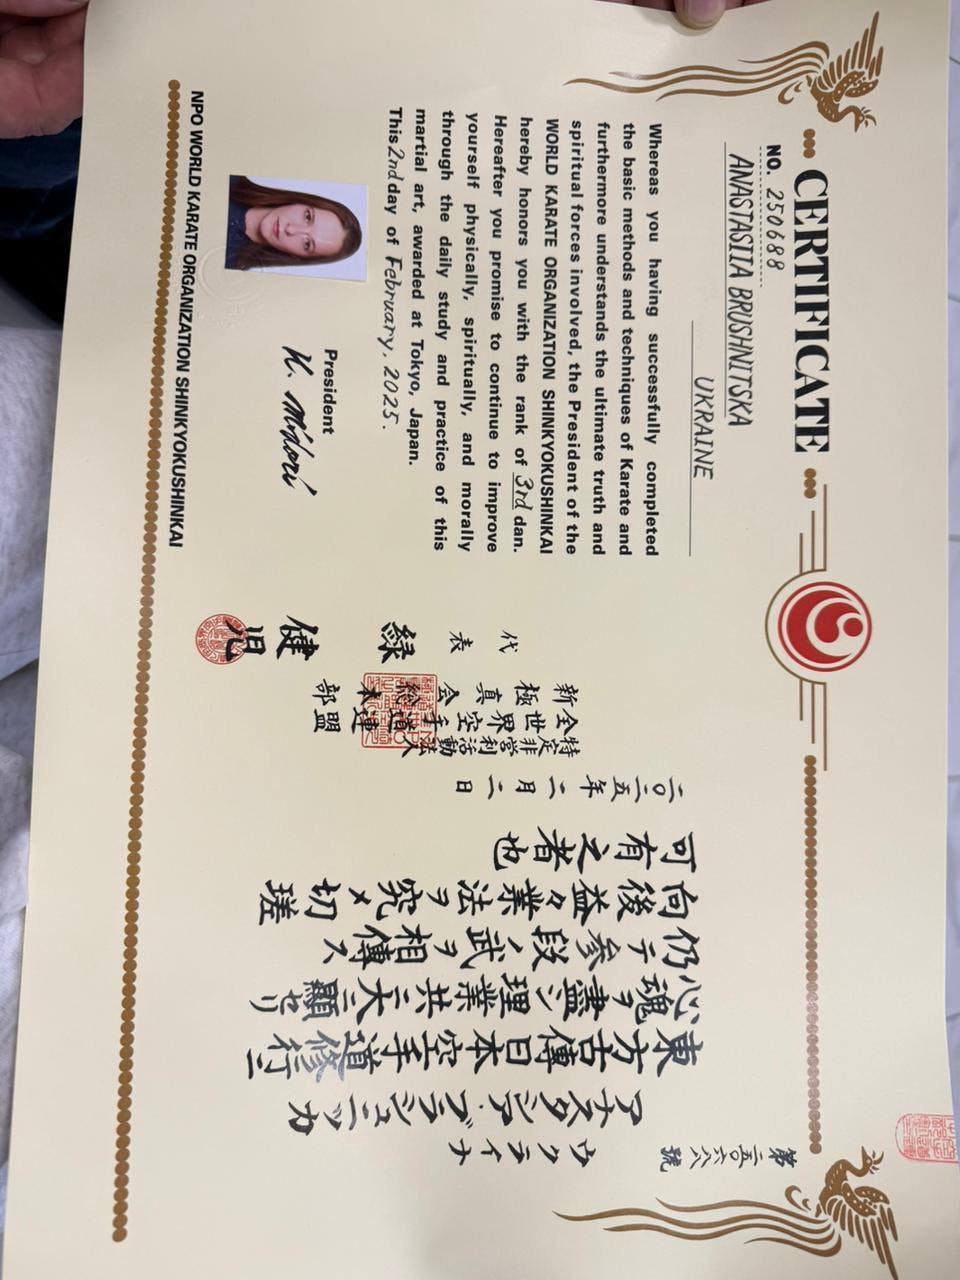 CERTIFICATE
NO. 250688
ANASTASIIA BRUSHNITSKA
UKRAINE
Whereas you having successfully completed
the basic methods and techniques of Karate and
furthermore understands the ultimate truth and
spiritual forces involved, the President of the
WORLD KARATE ORGANIZATION SHINKYOKUSHINKAI
hereby honors you with the rank of 3rd dan.
Hereafter you promise to continue to improve
yourself physically, spiritually, and morally
through the daily study and practice of this
martial art, awarded at Tokyo, Japan.
This 2nd day of February, 2025.
President
K. Midori
NPO WORLD KARATE ORGANIZATION SHINKYOKUSHINKAI
第二五〇六八八號
ウクライナ
アナスタシア・ブラシュニツカ
東方古傳日本空手道修行ニ
心魂ヲ盡シ理業共ニ大ニ顯セリ
仍テ参段ノ武ヲ相傳ス
向後益々業法ヲ究メ切瑳
可有之者也
二〇二五年二月二日
特定非営利活動法人
全世界空手道連盟
新極真会総本部
代表
緑健児